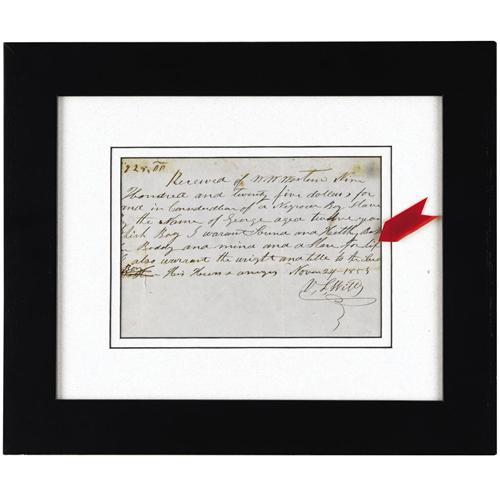 925.00
Received of W. W. Western Nine
Hundred and twenty five dollars for
and in Consideration of a Negrow Boy Slave
the Name of George aged twelve years
Boy I warant Sound and Healthy Both
Boddy and mind and a Slave for Life
also warant the wright and title to the Said
Boy His Heirs & asigns Novem 24 - 1853